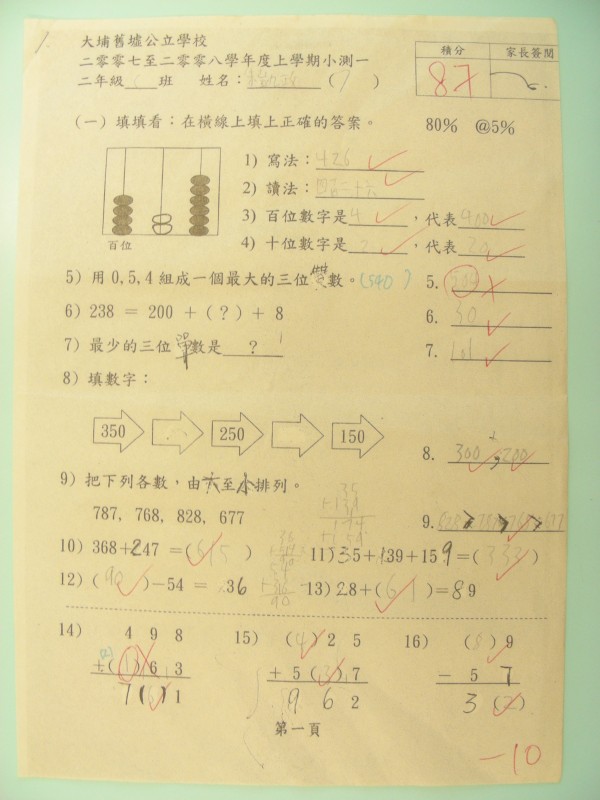 大埔舊墟公立學校
二零零七至二零零八學年度上學期小測一
積分 家長簽閱
87
二年級 班 姓名： (7)
(一) 填填看：在橫線上填上正確的答案。 80% @5%
1) 寫法：426
2) 讀法：四百二十六
3) 百位數字是 4 ，代表 400
4) 十位數字是 2 ，代表 20
百位
5) 用 0,5,4 組成一個最大的三位雙數。(540) 5. 504
6) 238 = 200 + (?) + 8 6. 30
7) 最少的三位單數是 ? 7. 101
8) 填數字：
350 250 150
8. 300, 200
9) 把下列各數，由大至小排列。
787, 768, 828, 677 9. 828>787>768>677
10) 368+247 =(615) 11) 35+139+159=(333)
12) (90)-54 = 36 13) 28+(61)=89
14) 498 15) (4)25 16) (8)9
+(1)63 +5(3)7 -57
7( )1 962 3(2)
第一頁
-10